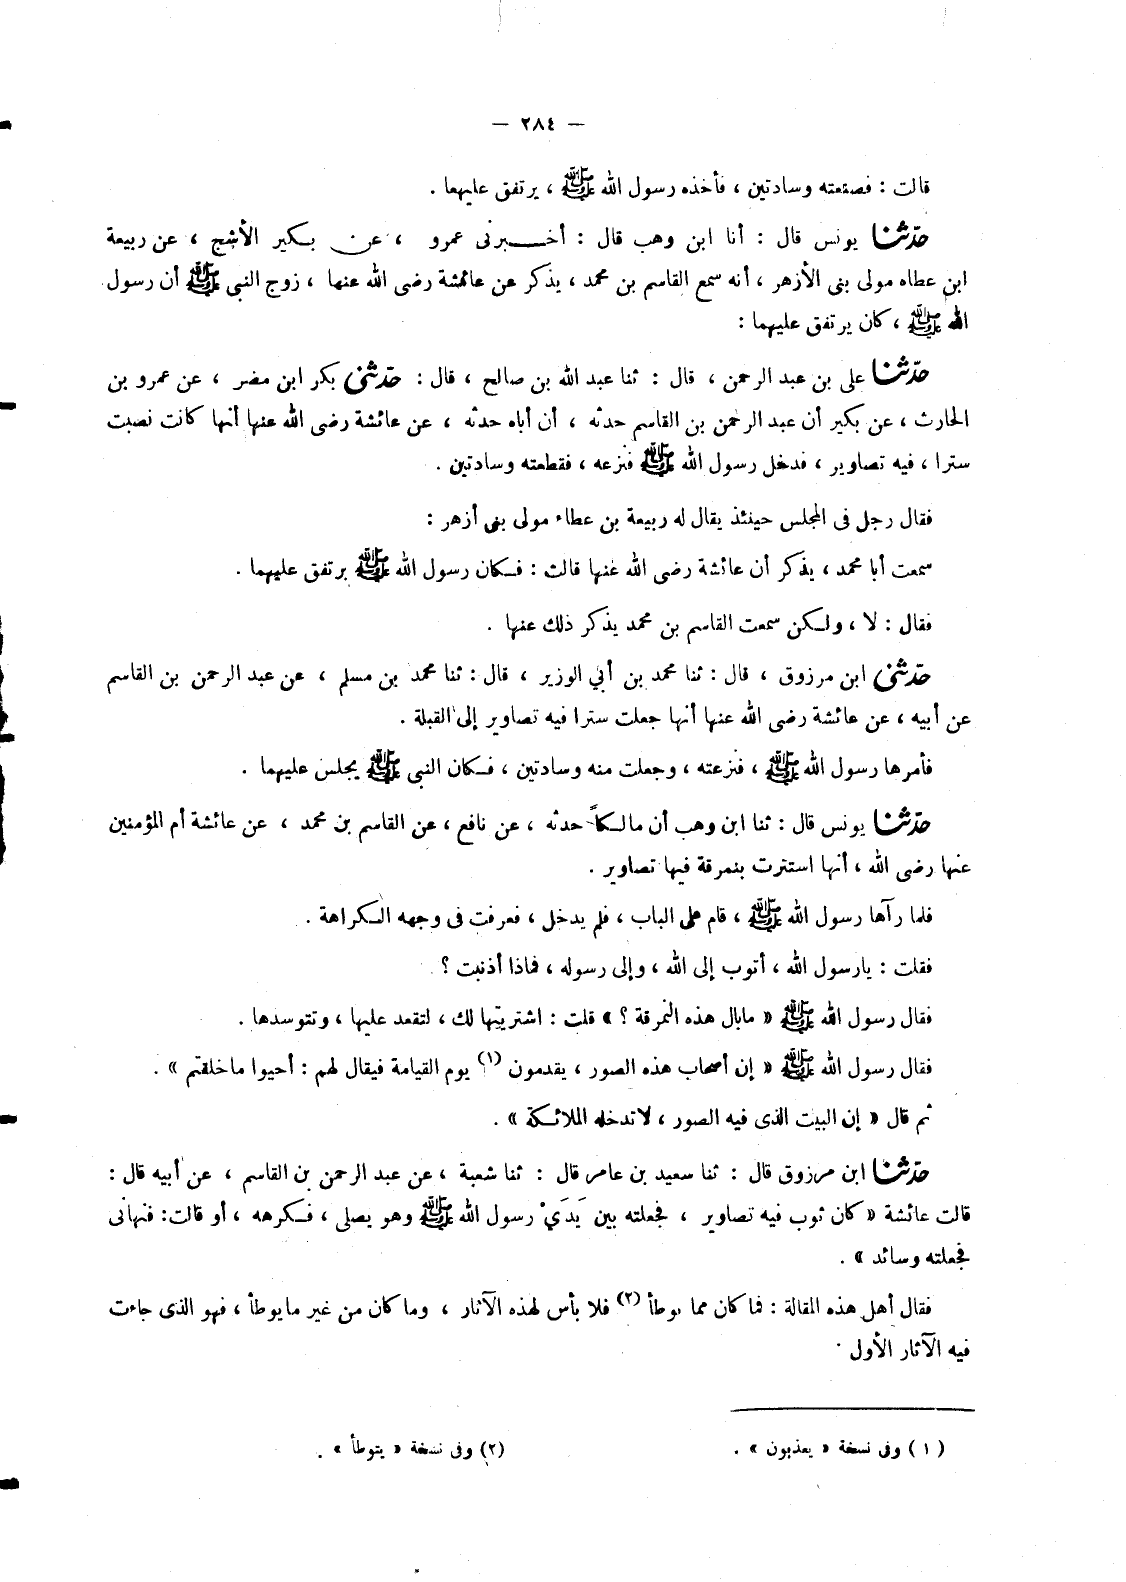 — ٢٨٤ —
قالت : فصنعته وسادتين ، فأخذه رسول الله ﷺ ، يرتفق عليهما .
حدثنا يونس قال : أنا ابن وهب قال : أخـبرنى عمرو ، عن بـكير الأشج ، عن ربيعة
ابن عطاه مولى بنى الأزهر ، أنه سمع القاسم بن محمد ، يذكر عن عائشة رضى الله عنها ، زوج النبى ﷺ أن رسول
الله ﷺ ، كان يرتفق عليهما :
حدثنا على بن عبد الرحمن ، قال : ثنا عبد الله بن صالح ، قال : حدثنى بكر ابن مضر ، عن عمرو بن
الحارث ، عن بكير أن عبد الرحمن بن القاسم حدثه ، أن أباه حدثه ، عن عائشة رضى الله عنها أنها كانت نصبت
سترا ، فيه تصاوير ، فدخل رسول الله ﷺ فنزعه ، فقطعته وسادتين .
فقال رجل فى المجلس حينئذ يقال له ربيعة بن عطاء مولى بنى أزهر :
سمعت أبا محمد ، يذكر أن عائشة رضى الله عنها قالت : فـكان رسول الله ﷺ يرتفق عليهما .
فقال : لا ، ولـكن سمعت القاسم بن محمد يذكر ذلك عنها .
حدثنى ابن مرزوق ، قال : ثنا محمد بن أبي الوزير ، قال : ثنا محمد بن مسلم ، عن عبد الرحمن بن القاسم
عن أبيه ، عن عائشة رضى الله عنها أنها جعلت سترا فيه تصاوير إلى القبلة .
فأمرها رسول الله ﷺ ، فنزعته ، وجعلت منه وسادتين ، فـكان النبى ﷺ يجلس عليهما .
حدثنا يونس قال : ثنا ابن وهب أن مالـكاً حدثه ، عن نافع ، عن القاسم بن محمد ، عن عائشة أم المؤمنين
عنها رضى الله ، أنها استترت بنمرقة فيها تصاوير .
فلما رآها رسول الله ﷺ ، قام على الباب ، فلم يدخل ، فعرفت فى وجهه الـكراهة .
فقلت : يارسول الله ، أتوب إلى الله ، وإلى رسوله ، فماذا أذنبت ؟ .
فقال رسول الله ﷺ « مابال هذه النمرقة ؟ » قلت : اشتريتها لك ، لتقعد عليها ، وتتوسدها .
فقال رسول الله ﷺ « إن أصحاب هذه الصور ، يقدمون (١) يوم القيامة فيقال لهم : أحيوا ماخلقتم » .
ثم قال « إن البيت الذى فيه الصور ، لاتدخله الملائـكة » .
حدثنا ابن مرزوق قال : ثنا سعيد بن عامر قال : ثنا شعبة ، عن عبد الرحمن بن القاسم ، عن أبيه قال :
قالت عائشة « كان ثوب فيه تصاوير ، فجعلته بين يَدَيْ رسول الله ﷺ وهو يصلى ، فـكرهه ، أو قالت : فنهانى
فجعلته وسائد » .
فقال أهل هذه المقالة : فما كان مما يوطأ (٢) فلا بأس لهذه الآثار ، وما كان من غير مايوطأ ، فهو الذى جاءت
فيه الآثار الأول .
(١) وفى نسخة « يعذبون » .
(٢) وفى نسخة « يتوطأ » .